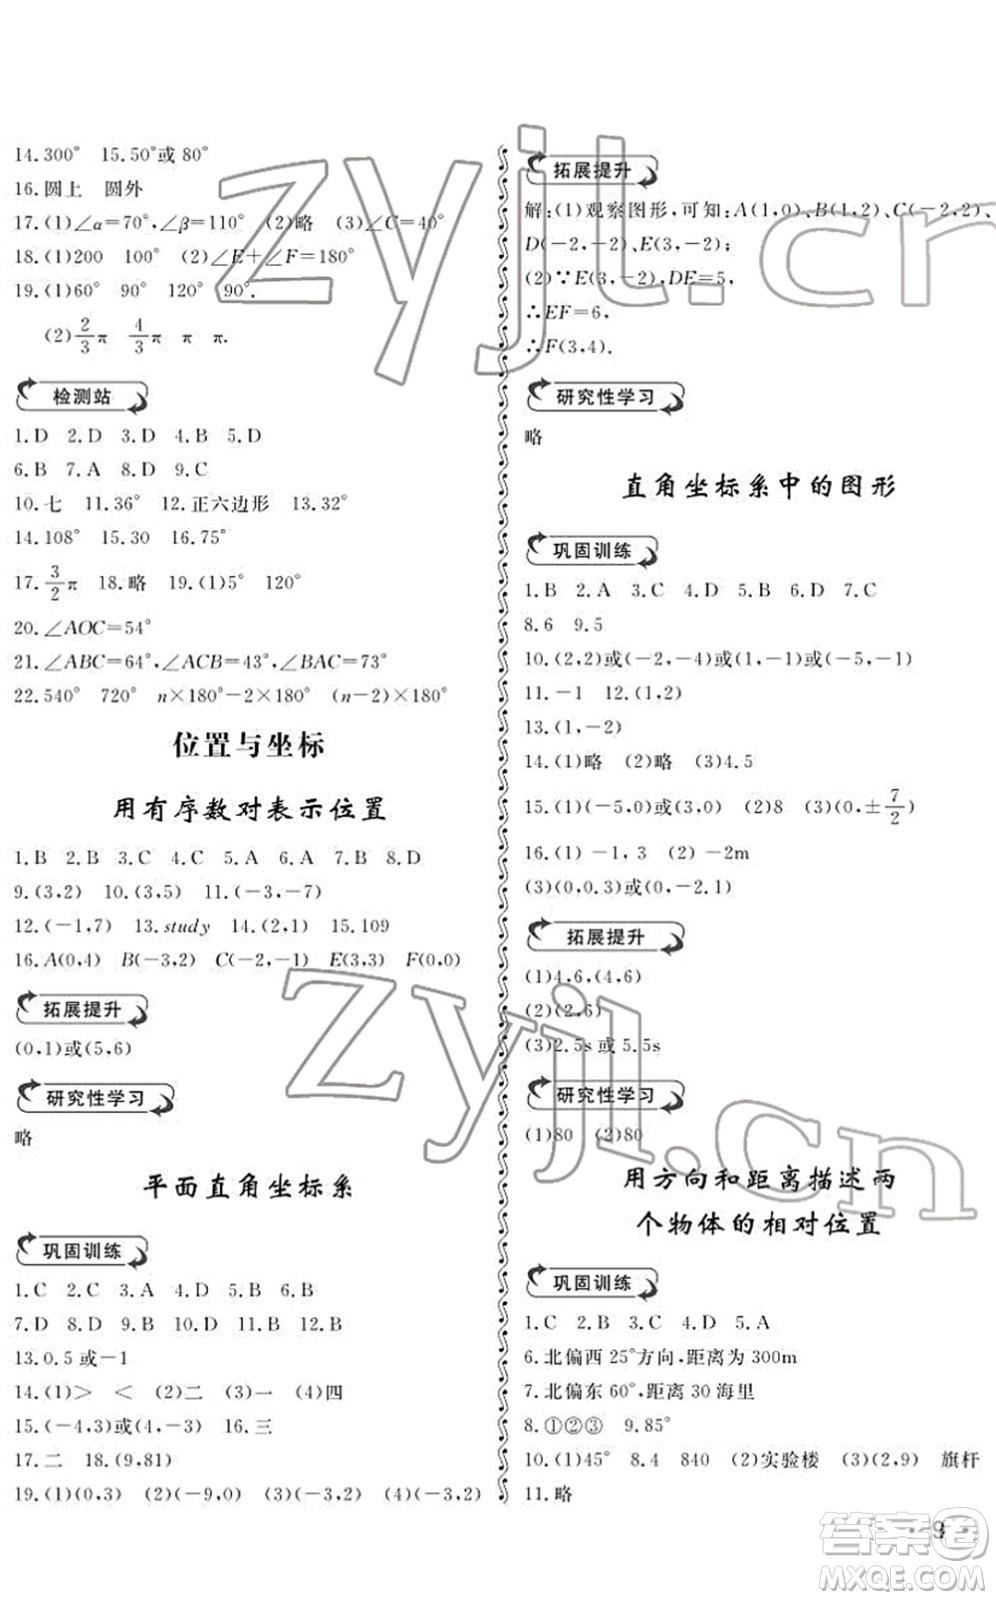 14.300°  15.50°或 80°
16.圆上  圆外
17.(1)∠α=70°,∠β=110°  (2)略  (3)∠C=40°
18.(1)200  100°  (2)∠E+∠F=180°
19.(1)60°  90°  120°  90°.
(2)2/3π  4/3π  π  π.
检测站
1.D  2.D  3.D  4.B  5.D
6.B  7.A  8.D  9.C
10.七  11.36°  12.正六边形  13.32°
14.108°  15.30  16.75°
17.3/2π  18.略  19.(1)5°  120°
20.∠AOC=54°
21.∠ABC=64°,∠ACB=43°,∠BAC=73°
22.540°  720°  n×180°-2×180°  (n-2)×180°
位置与坐标
用有序数对表示位置
1.B  2.B  3.C  4.C  5.A  6.A  7.B  8.D
9.(3,2)  10.(3,5)  11.(-3,-7)
12.(-1,7)  13.study  14.(2,1)  15.109
16.A(0,4)  B(-3,2)  C(-2,-1)  E(3,3)  F(0,0)
拓展提升
(0,1)或(5,6)
研究性学习
略
平面直角坐标系
巩固训练
1.C  2.C  3.A  4.D  5.B  6.B
7.D  8.D  9.B  10.D  11.B  12.B
13.0.5 或-1
14.(1)>  <  (2)二  (3)一  (4)四
15.(-4,3)或(4,-3)  16.三
17.二  18.(9,81)
19.(1)(0,3)  (2)(-9,0)  (3)(-3,2)  (4)(-3,2)
拓展提升
解:(1)观察图形,可知:A(1,0)、B(1,2)、C(-2,2)、
D(-2,-2)、E(3,-2);
(2)∵E(3,-2),DE=5,
∴EF=6,
∴F(3,4).
研究性学习
略
直角坐标系中的图形
巩固训练
1.B  2.A  3.C  4.D  5.B  6.D  7.C
8.6  9.5
10.(2,2)或(-2,-4)或(1,-1)或(-5,-1)
11.-1  12.(1,2)
13.(1,-2)
14.(1)略  (2)略  (3)4.5
15.(1)(-5,0)或(3,0)  (2)8  (3)(0,±7/2)
16.(1)-1,3  (2)-2m
(3)(0,0.3)或(0,-2.1)
拓展提升
(1)4,6,(4,6)
(2)(2,6)
(3)2.5s 或 5.5s
研究性学习
(1)80  (2)80
用方向和距离描述两
个物体的相对位置
巩固训练
1.C  2.B  3.C  4.D  5.A
6.北偏西 25°方向,距离为 300m
7.北偏东 60°,距离 30 海里
8.①②③  9.85°
10.(1)45°  8.4  840  (2)实验楼  (3)(2,9)  旗杆
11.略
9
zyjl.cn
zyjl.cn
答案圈
MXQE.COM